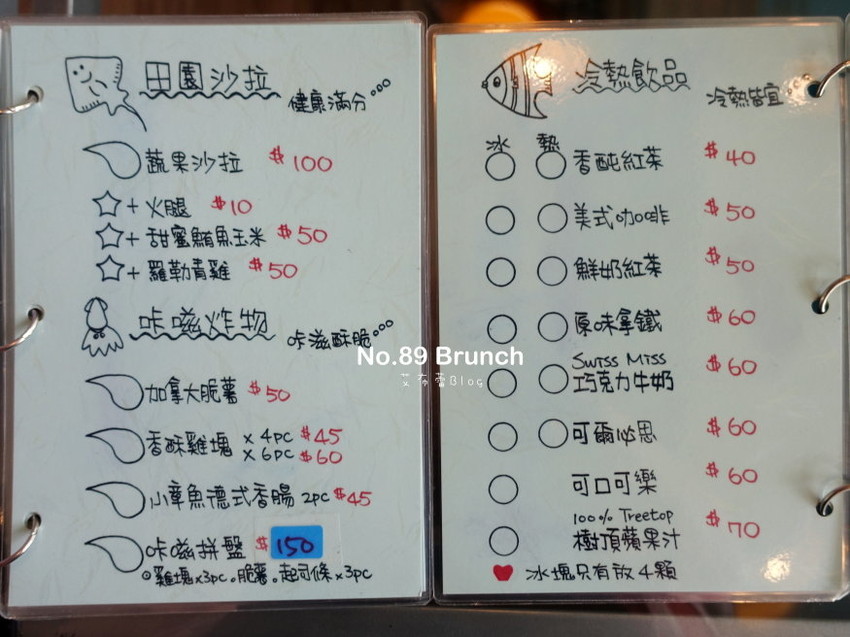 田園沙拉 健康滿分
蔬果沙拉 $100
+火腿 $10
+甜蜜鮪魚玉米 $50
+羅勒青雞 $50
咔嗞炸物 咔滋酥脆
加拿大脆薯 $50
香酥雞塊 x 4pc $45
x 6pc $60
小章魚德式香腸 2pc $45
咔嗞拼盤 $150
雞塊x3pc。脆薯。起司條x3pc
冷熱飲品 冷熱皆宜
冰 熱
香醇紅茶 $40
美式咖啡 $50
鮮奶紅茶 $50
原味拿鐵 $60
Swiss Miss
巧克力牛奶 $60
可爾必思 $60
可口可樂 $60
100% Treetop
樹頂蘋果汁 $70
冰塊只有放4顆
No.89 Brunch
Blog